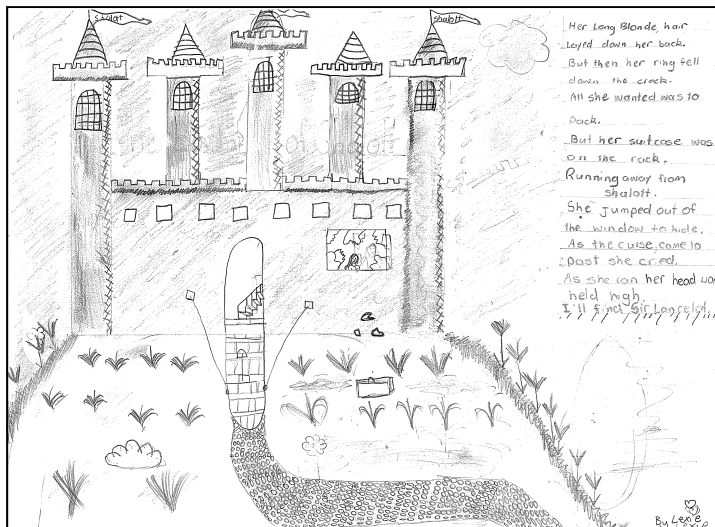 Shalat
shalott
of Shalott
Her Long Blonde, hair
Layed down her back.
But then her ring fell
down the crack.
All she wanted was to
Pack.
But her suitcase was
on the rack.
Running away from
shalott.
She Jumped out of
the window to hide.
As the curse came to
past she cried.
As she ran her head was
held high.
I'll find Sir Lancelot.
By